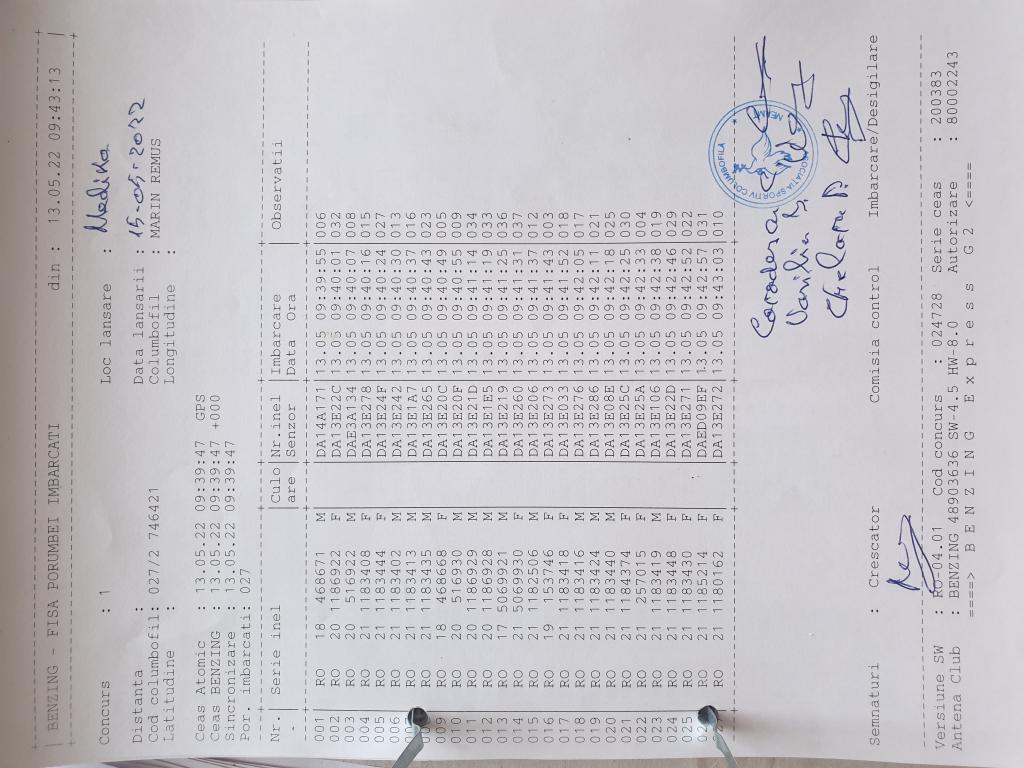 BENZING - FISA PORUMBEI IMBARCATI din : 13.05.22 09:43:13
Concurs : 1 Loc lansare : Nadika
Distanta : Data lansarii : 15-05-2022
Cod columbofil: 027/2 746421 Columbofil : MARIN REMUS
Latitudine : Longitudine :
Ceas Atomic : 13.05.22 09:39:47 GPS
Ceas BENZING : 13.05.22 09:39:47 +000
Sincronizare : 13.05.22 09:39:47
Por. imbarcati: 027
Nr. | Serie inel |Culo|Nr.inel |Imbarcare | Observatii
- |are |Senzor |Data Ora |
001 RO 18 468671 M DA14A171 13.05 09:39:55 006
002 RO 20 1186922 F DA13E22C 13.05 09:40:01 032
003 RO 20 516922 M DAE3A134 13.05 09:40:07 008
004 RO 21 1183408 F DA13E278 13.05 09:40:16 015
005 RO 21 1183444 F DA13E24F 13.05 09:40:24 027
006 RO 21 1183402 M DA13E242 13.05 09:40:30 013
RO 21 1183413 M DA13E1A7 13.05 09:40:37 016
RO 21 1183435 M DA13E265 13.05 09:40:43 023
009 RO 18 468668 F DA13E20C 13.05 09:40:49 005
010 RO 20 516930 M DA13E20F 13.05 09:40:55 009
011 RO 20 1186929 M DA13E21D 13.05 09:41:14 034
012 RO 20 1186928 M DA13E1E5 13.05 09:41:19 033
013 RO 17 5069921 M DA13E219 13.05 09:41:25 036
014 RO 21 5069930 F DA13E260 13.05 09:41:31 037
015 RO 21 1182506 M DA13E206 13.05 09:41:37 012
016 RO 19 153746 F DA13E273 13.05 09:41:43 003
017 RO 21 1183418 F DA13E033 13.05 09:41:52 018
018 RO 21 1183416 M DA13E276 13.05 09:42:05 017
019 RO 21 1183424 M DA13E286 13.05 09:42:11 021
020 RO 21 1183440 M DA13E08E 13.05 09:42:18 025
021 RO 21 1184374 F DA13E25C 13.05 09:42:25 030
022 RO 21 257015 F DA13E25A 13.05 09:42:33 004
023 RO 21 1183419 M DA13E106 13.05 09:42:38 019
024 RO 21 1183448 F DA13E22D 13.05 09:42:46 029
025 RO 21 1183430 F DA13E271 13.05 09:42:52 022
RO 21 1185214 F DAED09EF 13.05 09:42:57 031
RO 21 1180162 F DA13E272 13.05 09:43:03 010
ASOCIATIA SPORTIV COLUMBOFILA
Vasiliu
Semnaturi : Crescator Comisia control Imbarcare/Desigilare
Versiune SW : RO-04.01 Cod concurs : 024728 Serie ceas : 200383
Antena Club : BENZING 48903636 SW-4.5 HW-8.0 Autorizare : 80002243
====> B E N Z I N G E x p r e s s G 2 <====